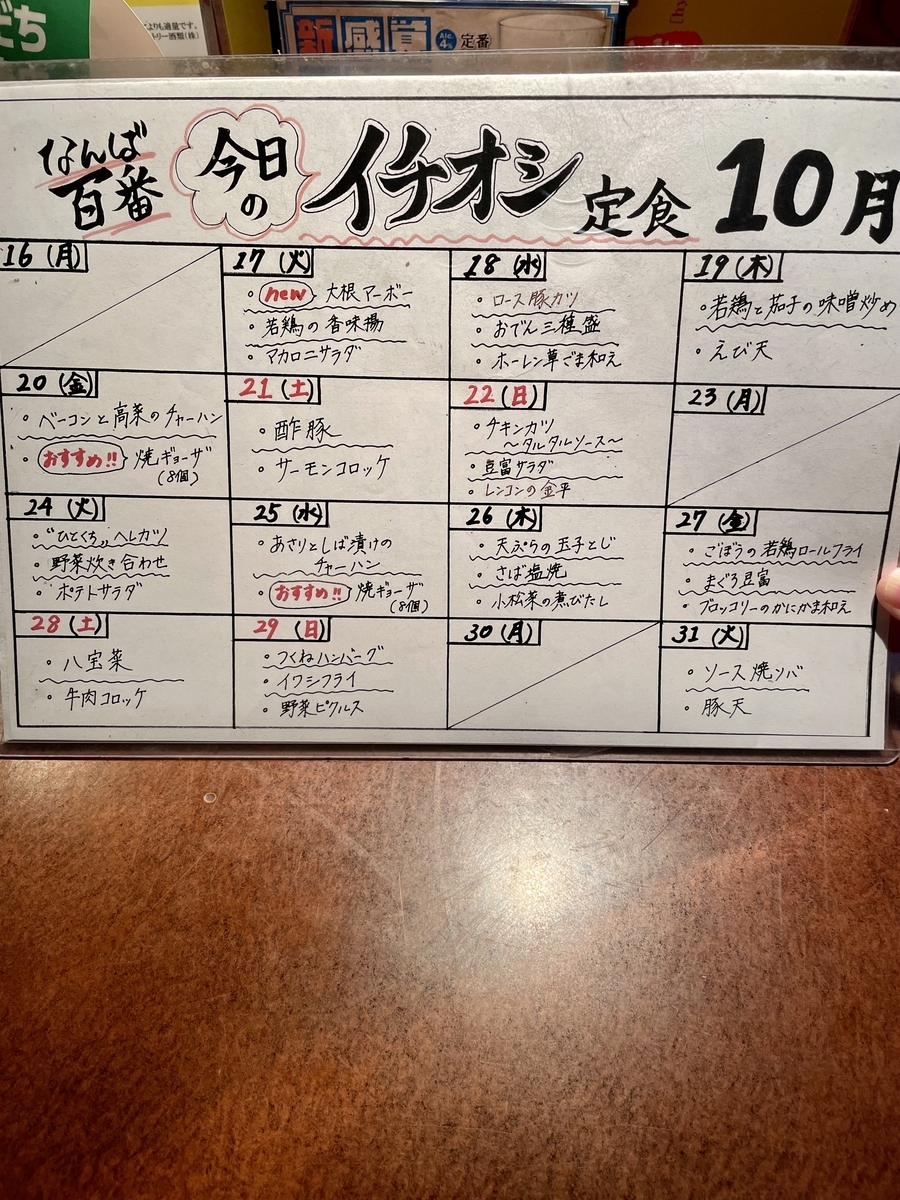 だち
よりも適量です。
トリー酒類(株)
新感覚
Alc.
4%
定番
[hy
なんば
百番
今日
の
イチオシ 定食 10月
16 (月)
17 (火)
・new 大根マーボー
・若鶏の香味揚
・マカロニサラダ
18 (水)
・ロース豚カツ
・おでん三種盛
・ホーレン草ごま和え
19 (木)
・若鶏と茄子の味噌炒め
・えび天
20 (金)
・ベーコンと高菜のチャーハン
・おすすめ!! 焼ギョーザ
(8個)
21 (土)
・酢豚
・サーモンコロッケ
22 (日)
・チキンカツ
〜タルタルソース〜
・豆富サラダ
・レンコンの金平
23 (月)
24 (火)
・“ひとくち„ヘレカツ
・野菜炊き合わせ
・ポテトサラダ
25 (水)
・あさりとしば漬けの
チャーハン
・おすすめ!! 焼ギョーザ
(8個)
26 (木)
・天ぷらの玉子とじ
・さば塩焼
・小松菜の煮びたし
27 (金)
・ごぼうの若鶏ロールフライ
・まぐろ豆富
・ブロッコリーのかにかま和え
28 (土)
・八宝菜
・牛肉コロッケ
29 (日)
・つくねハンバーグ
・イワシフライ
・野菜ピクルス
30 (月)
31 (火)
・ソース焼ソバ
・豚天